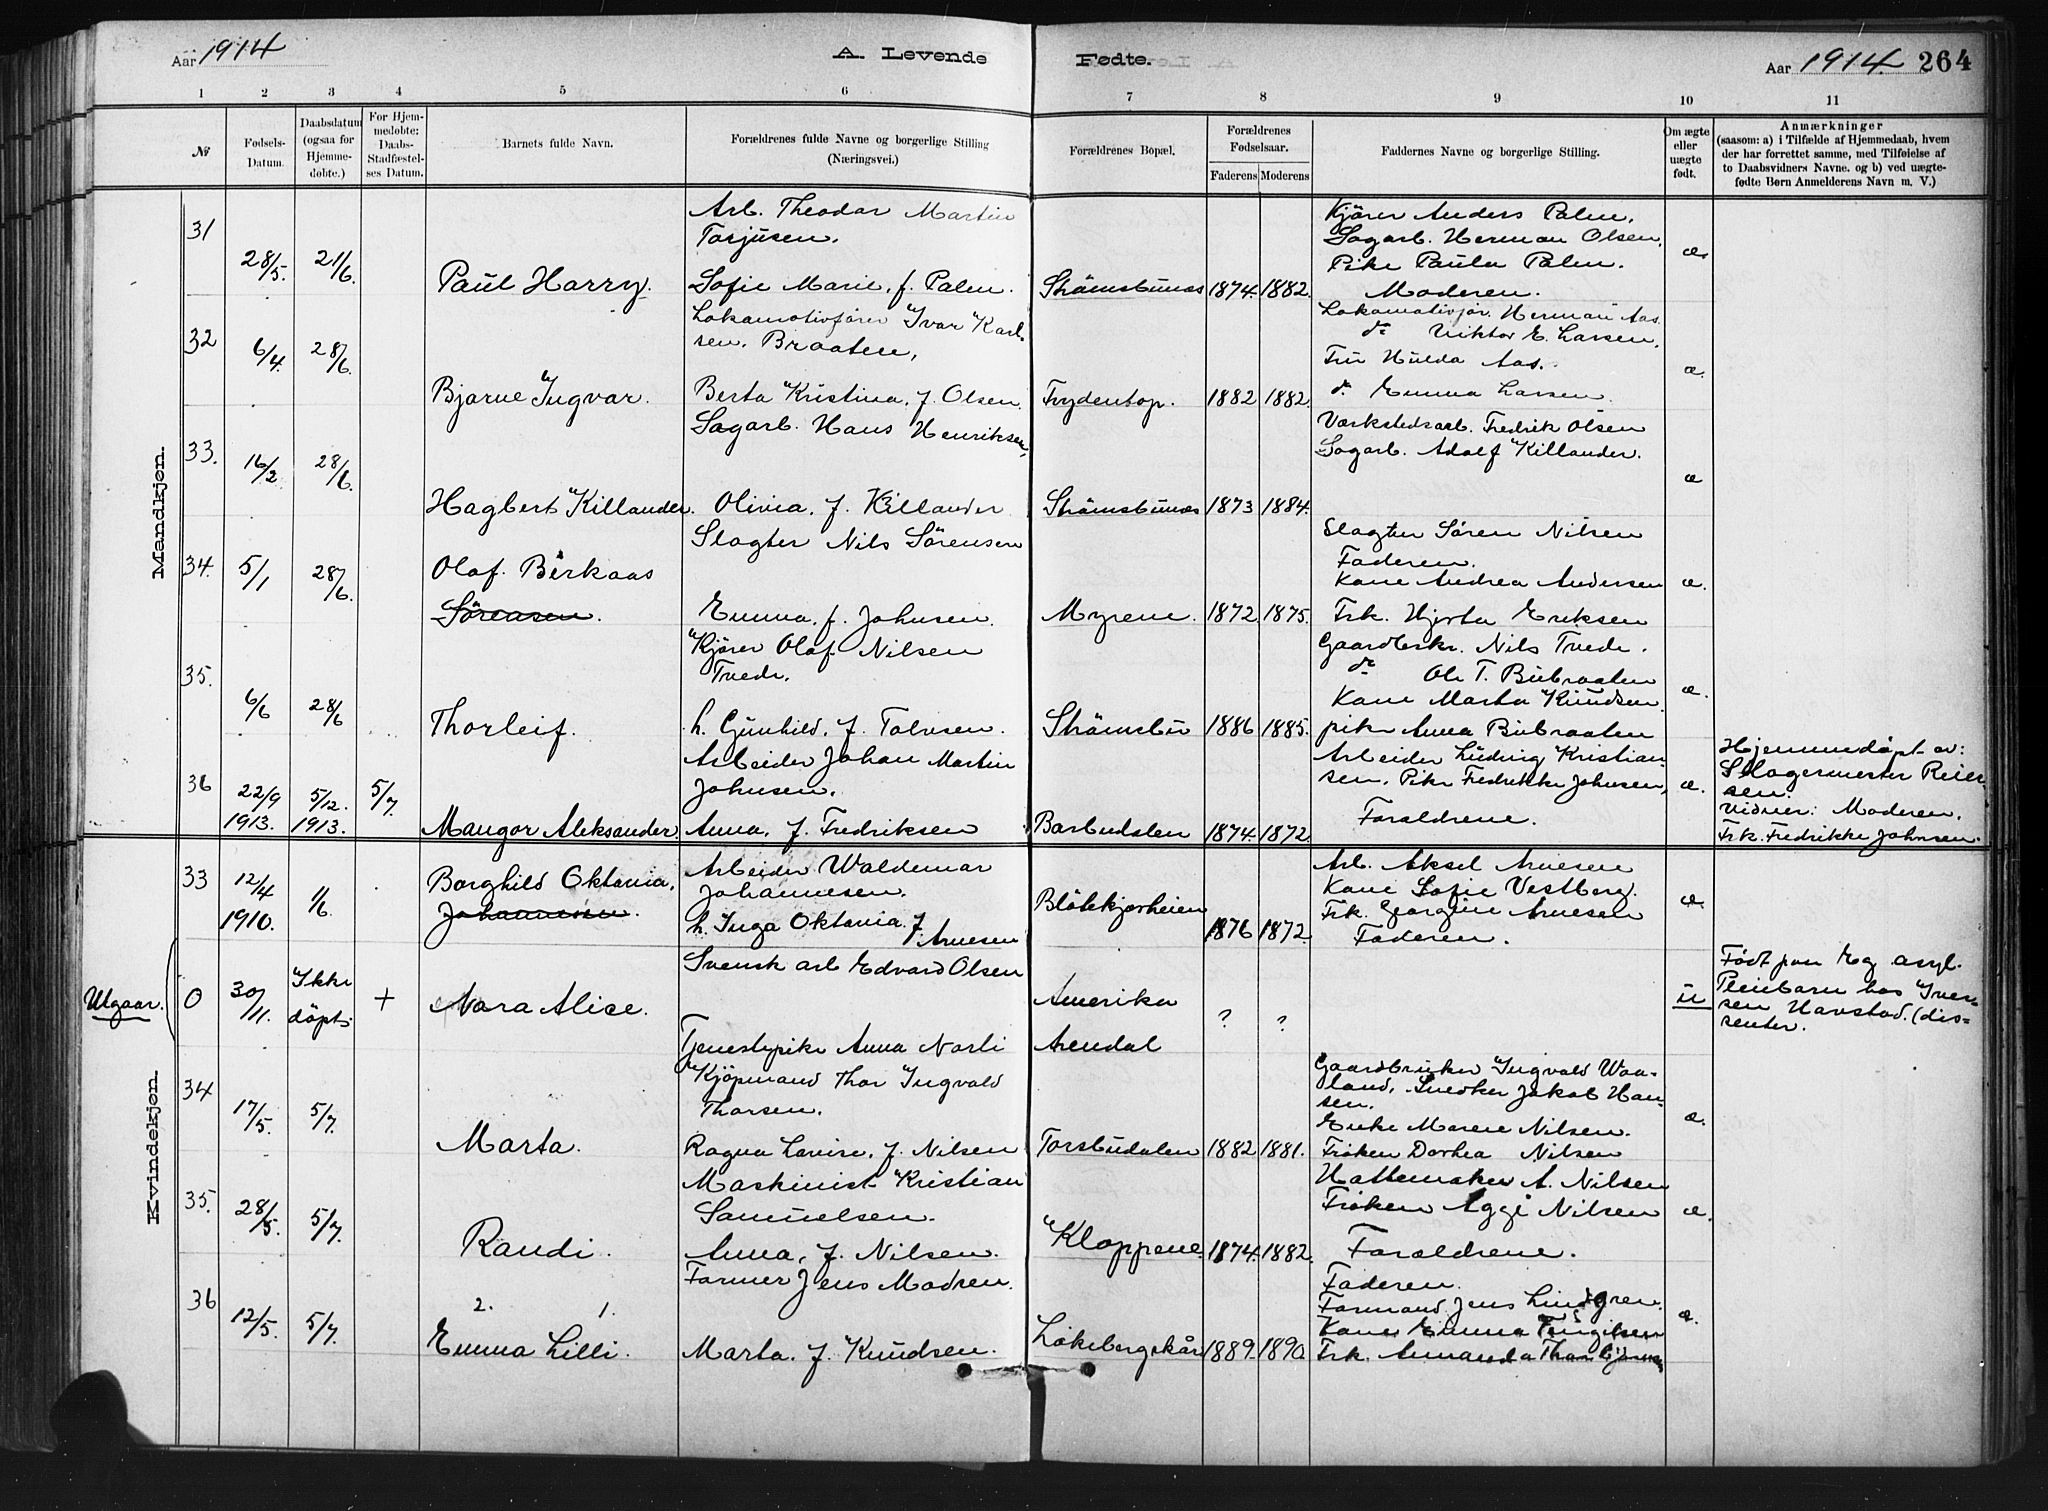 Aar 1914
A. Levende
Fødte.
Aar 1914. 264
1 2 3 4 5 6 7 8 9 10 11
№
Fødsels-
Datum.
Daabsdatum
(ogsaa for
Hjemme-
døbte.)
For Hjem-
medøbte:
Daabs-
Stadfæstel-
ses Datum.
Barnets fulde Navn.
Forældrenes fulde Navne og borgerlige Stilling
(Næringsvei.)
Forældrenes Bopæl.
Forældrenes
Fødselsaar.
Faderens Moderens
Faddernes Navne og borgerlige Stilling.
Om ægte
eller
uægte
født.
Anmærkninger
(saasom: a) i Tilfælde af Hjemmedaab, hvem
der har forrettet samme, med Tilføielse af
to Daabsvidners Navne. og b) ved uægte-
fødte Børn Anmelderens Navn m. V.)
Mandkjøn.
31
28/5. 21/6.
Paul Harry.
Arb. Theodor Martin
Torjusen.
Sofie Marie, f. Palen.
Strømsbunes 1874. 1882.
Kjører Anders Palen.
Sagarb. Herman Olsen.
Pike Paula Palen.
Moderen.
æ.
32
6/4. 28/6.
Bjarne Ingvar.
Lokomotivfører Ivar Karl-
sen. Braaten,
Berta Kristina, f. Olsen.
Frydentop. 1882 1882.
Lokomotivfør. Herman Aas.
do Viktor E. Larsen.
Fru Hulda Aas.
do. Emma Larsen.
æ.
33.
16/2. 28/6.
Hagbert Killander.
Sagarb. Hans Henriksen,
Olivia. f. Killander
Strømsbunes 1873 1884.
Værkstedsarb. Fredrik Olsen
Sagarb. Adolf Killander.
æ
34.
5/1 28/6.
Olaf. Birkaas
Sørensen.
Slagter Nils Sørensen
Emma. f. Johnsen.
Myrene. 1872 1875.
Slagter Søren Nilsen
Faderen.
Kone Andrea Andersen
Frk. Hjørta Eriksen
æ.
35.
6/6 28/6
Thorleif.
Kjører Olaf Nilsen
Tvede.
h. Gunhild. f. Tolvsen.
Strømsbu 1886 1885.
Gaardbrkr. Nils Tvede.
do Ole T. Bubraaten
Kone Marta Knudsen.
pike Anna Bubraaten
æ.
36
22/9 1913. 5/12. 1913. 5/7.
Mangor Aleksander.
Arbeider Johan Martin
Johnsen.
Anna. f. Fredriksen
Barbudalen 1874. 1872.
Arbeider Ludvig Kristian-
sen. Pike Fredrikke Johnsen,
Forældrene.
æ.
Hjemmedøpt av:
Slagermester Reier-
sen.
Vidner: Moderen.
Frk. Fredrikke Johnsen.
Kvindekjøn.
33
12/4 1910. 1/6.
Borghild Oktavia.
Johannesen.
Arbeider Waldemar
Johannesen.
h. Inga Oktavia f.
Arnesen
Bløtekjærheien
1876 1872.
Arb. Aksel Arnesen
Kone Sofie Vestberg.
Frk. Georgine Arnesen
Faderen.
æ.
Utgaar.
0
30/11. Ikke
døpt. +
Nora Alice.
Svensk arb Edvard Olsen
Tjenestepike Anna Norli
Amerika
Arendal
? ?
u
Født paa Eg asyl.
Pleiebarn hos Iver-
sen Havstad. (dis-
senter.
34
17/5. 5/7.
Marta.
Kjøpmand Thor Ingvald
Thorsen.
Ragna Lovise. f. Nilsen
Torsbudalen 1882 1881.
Gaardbruker Ingvald Waa-
land, Snedker Jakob Han-
sen.
Enke Maren Nilsen.
Frøken Dorhea Nilsen
æ.
35.
28/5. 5/7.
Randi.
Maskinist Kristian
Samuelsen.
Anna, f. Nilsen.
Kloppene. 1874. 1882.
Hattemaker A. Nilsen
Frøken Aggi Nilsen
Forældrene.
æ.
36
12/5. 5/7.
2. 1.
Emma Lilli.
Former Jens Madsen.
Marta. f. Knudsen.
Løkebergskår 1889. 1890.
Faderen.
Formand Jens Lindgren.
Kone Emma
Frk. Amanda Thorbjørnsen
æ.